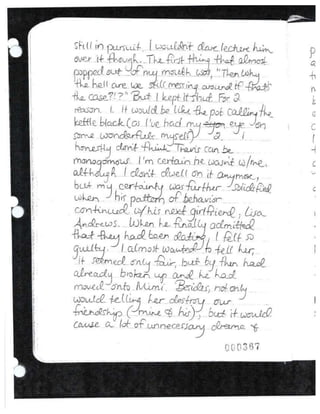 still in pursuit. I wouldn't dare lecture him
over it though. The first thing that almost
popped out of my mouth was, "Then why
the hell are we still messing around if that's
the case?!?" But I kept it shut. For 2
reason. 1. It would be like the pot calling the
kettle black (as I've had my eye on
some wonderfuls myself) 2. I
honestly don't think Travis can be
monogomous. I'm certain he wasn't w/me,
although I don't dwell on it anymore,
but my certainty was further solidified
when his pattern of behavior
continued w/his next girlfriend, Lisa
Andrews. When he finally admitted
that they had been dating, I felt so
guilty. I almost wanted to tell her,
it seemed only fair, but by then had
already broken up and he had
moved onto Mimi. Besides, not only
would telling her destroy our
friendship (mine & his), but it would
cause a lot of unnecessary drama &
000367